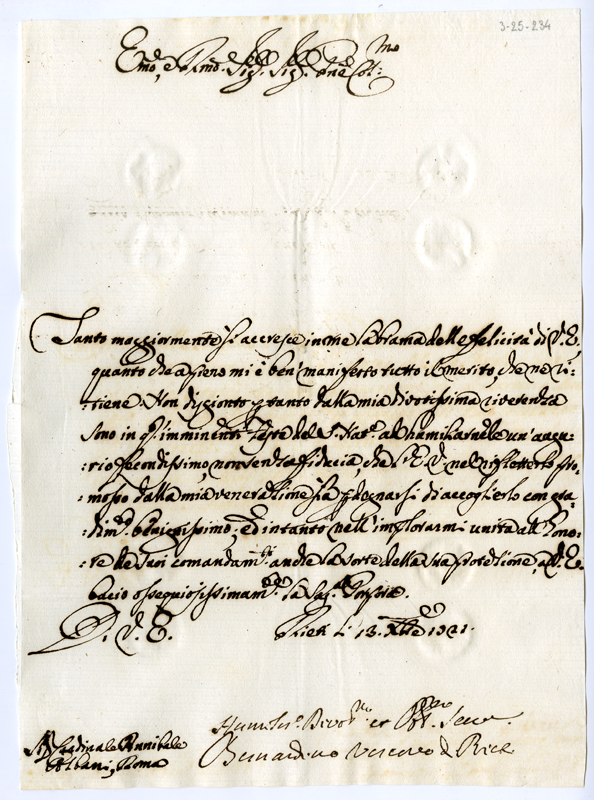 3-25-234
Emo, e Rmo Sig.r Sig.r Pne Col:mo
Tanto maggiormente si accresce in me la brama delle felicità di V. E.
quanto che a pieno mi è ben manifesto tutto il merito, che ne ri-
:tiene. Non disgionto p tanto dalla mia divotissima riverenza
sono in q.ti imminenti Feste del S. Nat.e ad humiliarnele un' augu-
:rio fecondissimo, non senza fiducia, che l'E. V. nel rifletterlo pro-
:mosso dalla mia venerazione sia p degnarsi di accoglierlo con gra-
:dim.to benignissimo, ed intanto nell' implorarmi unita all' hono-
:re de suoi comandam.ti anche la sorte della sua protezione, a V. E.
bacio ossequiosissimam.te la Sag.
D. V. E. Rieti li 13. Xbre 1721.
Humiliss.o Devot.mo et Obl.mo Serv.
Sig. Cardinale Annibale Bernardino Vescovo di Rieti
Albani, Roma